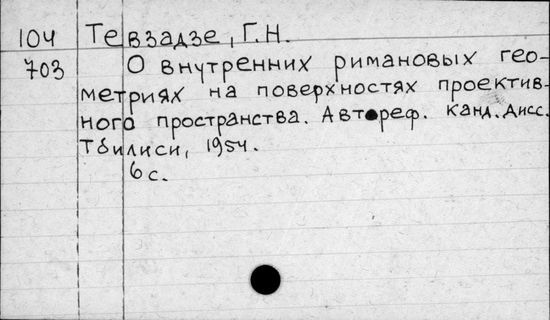 104 Тевзадзе, Г.Н.
703 О внутренних римановых гео-
метриях на поверхностях проектив-
ного пространства. Автореф. канд. дисс.
Тбилиси, 1954.
6 с.